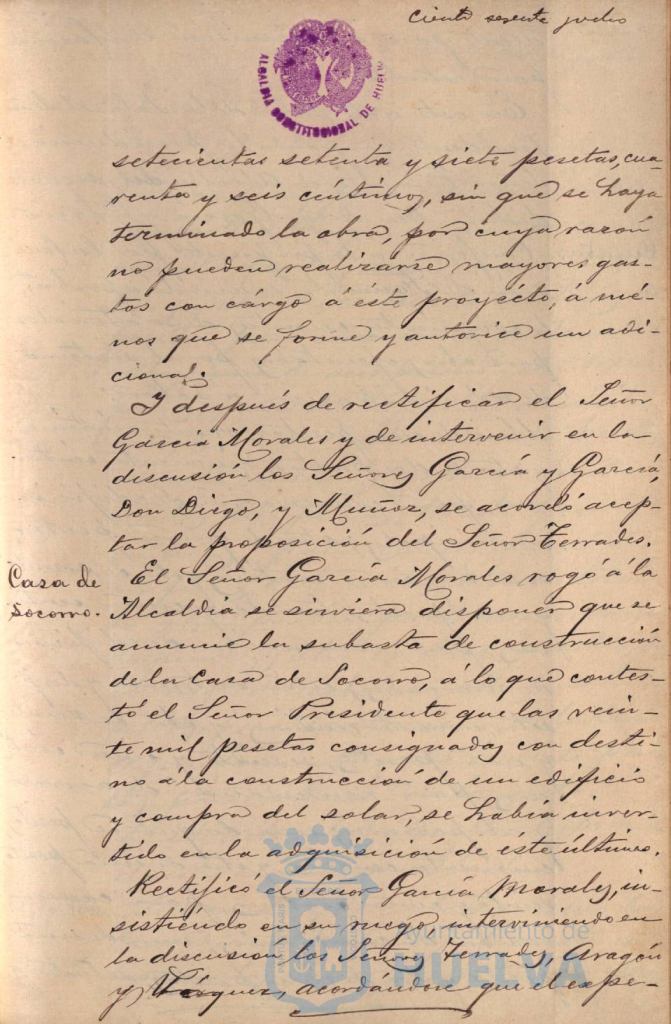 ciento sesenta y ocho
ALCALDIA CONSTITUCIONAL DE HUELVA
setecientas setenta y siete pesetas, cua-
renta y seis céntimos, sin que se haya
terminado la obra, por cuya razón
no pueden realizarse mayores gas-
tos con cárgo á éste proyécto, á mé-
nos que se forme y autorice un adi-
cional.
Y después de rectificar el Señor
García Morales y de intervenir en la
discusión los Señores García y García,
Don Diego, y Muñoz, se acordó acep-
tar la proposición del Señor Terrades.
Casa de
Socorro.
El Señor García Morales rogó á la
Alcaldia se sirviera disponer que se
anuncie la subasta de construcción
de la Casa de Socorro, á lo que contes-
tó el Señor Presidente que las vein-
te mil pesetas consignadas con desti-
no á la construcción de un edificio
y compra del solar, se había inver-
tido en la adquisición de éste último.
Rectificó el Señor García Morales, in-
sistiéndo en su ruego, interviniendo en
la discusión los Señores Terrades, Aragón
y Vázquez, acordándose que el expe-
Ayuntamiento de
HUELVA